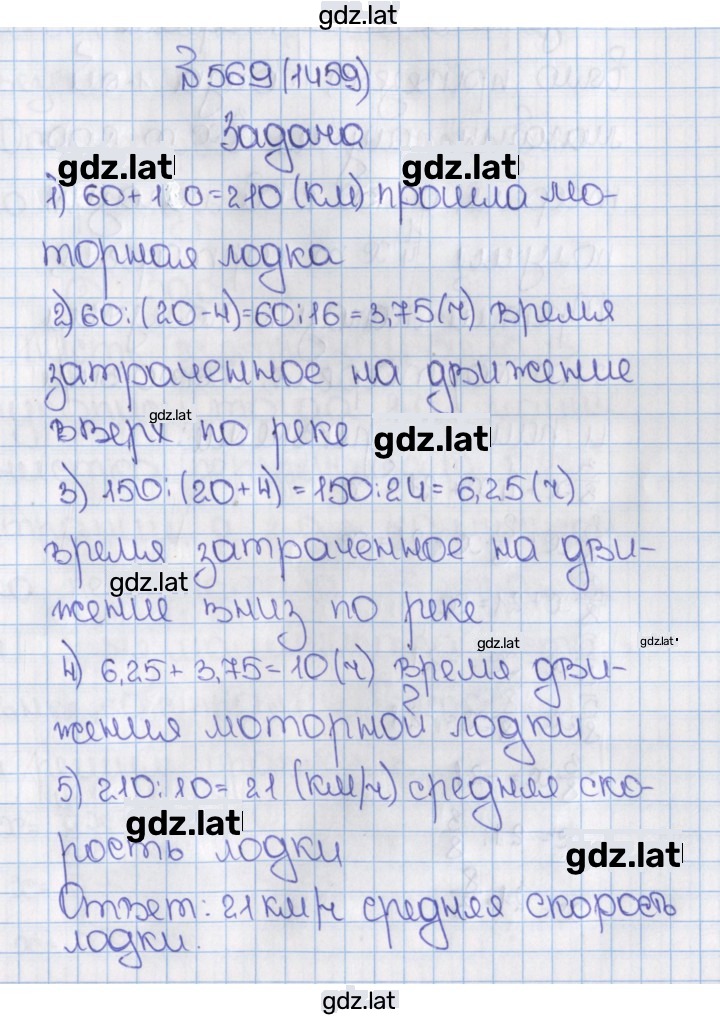 gdz.lat
№569(1459)
Задача
gdz.lat gdz.lat
1) 60+1 0=210 (км) прошла мо-
торная лодка
2) 60:(20-4)=60:16=3,75(ч) время
затраченное на движение
gdz.lat
вверх по реке gdz.lat
3) 150:(20+4)=150:24=6,25(ч)
время затраченное на дви-
gdz.lat
жение вниз по реке
gdz.lat gdz.lat
4) 6,25+3,75=10(ч) время дви-
жения моторной лодки
5) 210:10=21 (км/ч) средняя ско-
gdz.lat
рость лодки gdz.lat
Ответ: 21км/ч средняя скорость
лодки.
gdz.lat